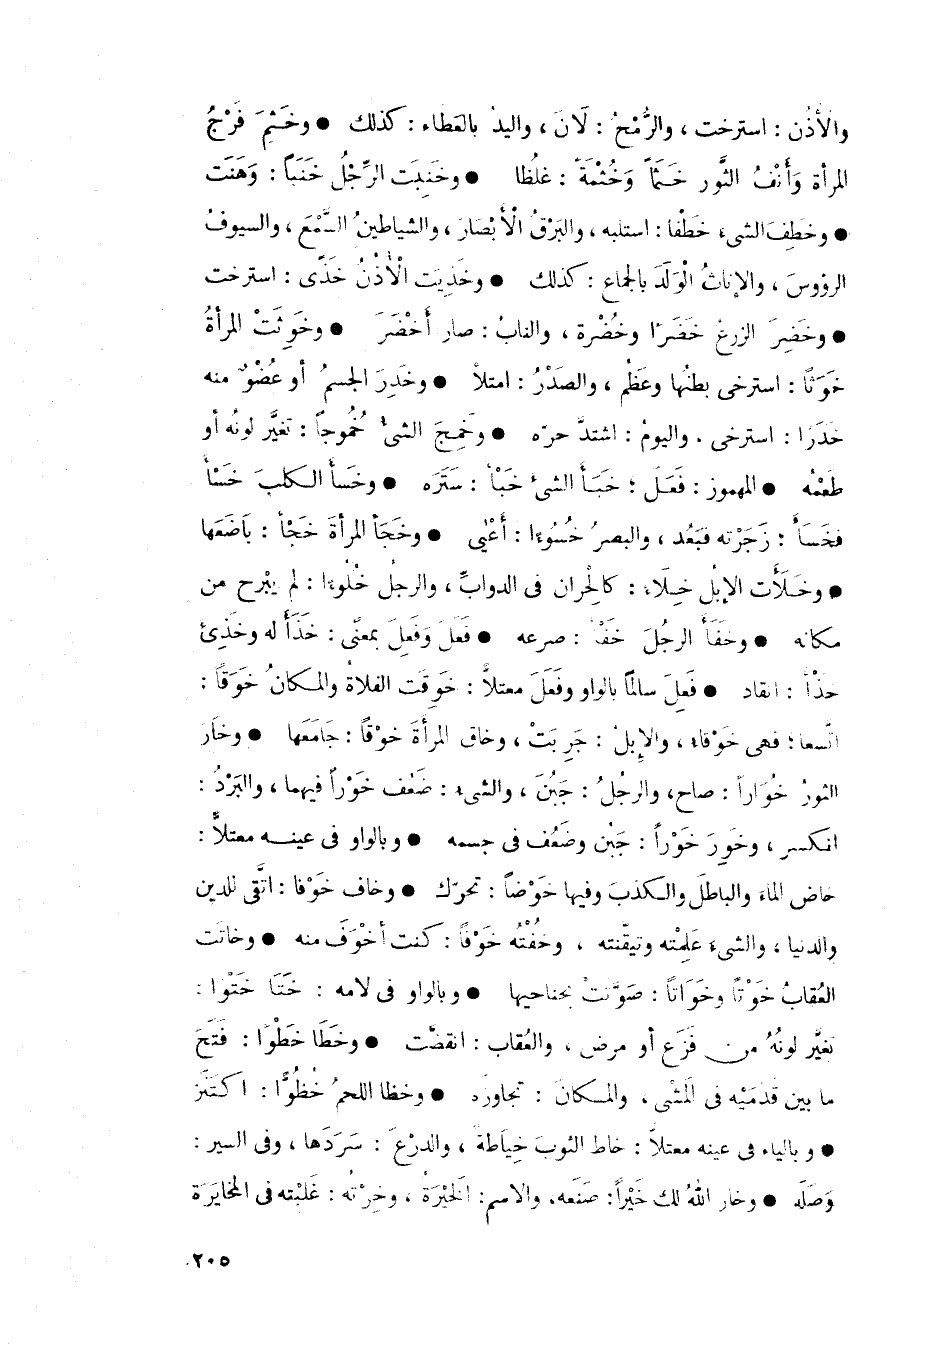 والأُذُن : استرخت ، والرُّمْحُ : لَانَ ، واليدُ بالعَطاء : كذلك ● وخَثِمَ فَرْجُ
المرأة وَأَنْفُ الثَّور خَثَمًا وَخُثْمَةً : غلُظا ● وخَنِبَت الرِّجْلُ خَنَباً : وَهَنَت
● وخطِفَ الشىء خَطْفا : استلبه ، والبَرْقُ الْأَبْصَارَ ، والشياطينُ السَّمْعَ ، والسيوفُ
الرؤوسَ ، والإناثُ الْوَلَدَ بالجماع : كذلك ● وخَذِيَت الْأُذْنُ خَذًى : استرخت
● وخَضِرَ الزرعُ خَضَرًا وخُضْرة ، والنابُ : صار أَخْضَرَ ● وخَوِثَتْ المرأةُ
خَوَثًا : استرخى بطنُها وعَظُم ، والصَدْرُ : امتلأ ● وخَدِرَ الجسمُ أو عُضْوٌ منه
خَدَرًا : استرخى . واليومُ : اشتدَّ حرّه ● وخَمِجَ الشىُ خُمُوجاً : تغيَّر لونُه أو
طَعْمُه ● المهموز : فَعَلَ ؛ خَبَأَ الشىَ خَبْأ : سَتَرَه ● وخَسَأَ الكلبَ خَسْأً
فخَسَأَ : زَجَرْته فبَعُد ، والبصرُ خُسُوءًا : أَعْيٰى ● وخَجَأَ المرأةَ خَجْأً : بَاضَعَها
● وخَلَأَت الإبْل خِلَاء : كالْحِران فى الدوابّ ، والرجلُ خُلْوءًا : لم يبْرح من
مكانه ● وخَفَأَ الرجُلَ خَفْأً : صرعه ● فَعَلَ وَفَعِلَ بمعنًى : خَذَأَ له وخَذِئَ
خَذْأً : انقاد ● فَعِلَ سالمًا بالواو وفَعَلَ معتلاًّ : خَوِقَت الفلاةُ والمكانُ خَوَقاً :
اتَّسعا ؛ فهى خَوْقاء ، والإبلُ : جَرِبَتْ ، وخاق المرأةَ خوْقاً : جَامَعَها ● وخَارَ
الثورُ خُوَاراً : صاح ، والرجُلُ : جَبُنَ ، والشىء : ضَعُف خَوَراً فيهما ، والبَرْدُ :
انكسر ، وخَوِرَ خَوْراً : جَبُن وضَعُف فى جسمه ● وبالواو فى عينه معتلاًّ :
خاض الماءَ والباطلَ والكذبَ وفيها خَوْضاً : تحرّك ● وخاف خَوْفا : اتَّقى للدين
والدنيا ، والشىءَ عَلِمْته وتيقّنته ، وخُفْتُه خَوْفاً : كنت أخْوَفَ منه ● وخاتَت
العُقابُ خَوْتًا وخَوَاتاً : صَوَّتتْ بجناحيها ● وبالواو فى لامه : خَتَا خَتْوًا :
تغيَّر لونُهُ من فَزَعٍ أو مرض ، والعُقاب : انقضّت ● وخَطَا خَطْوًا : فَتَحَ
ما بين قدَمَيْه فى المَشْى ، والمكانَ : تجاوزَه ● وخظا اللحمُ خُظُوًّا : اكتَنَز
● وبالياء فى عينه معتلاًّ : خاط الثوبَ خِيَاطةً ، والدرْعَ : سَرَدَها ، وفى السير :
وَصَلَه ● وخار اللهُ لك خَيْراً : صَنَعه . والاسم : الْخِيَرَةُ ، وخِرْتُه : غَلَبْته فى المخايَرَة
٢٠٥